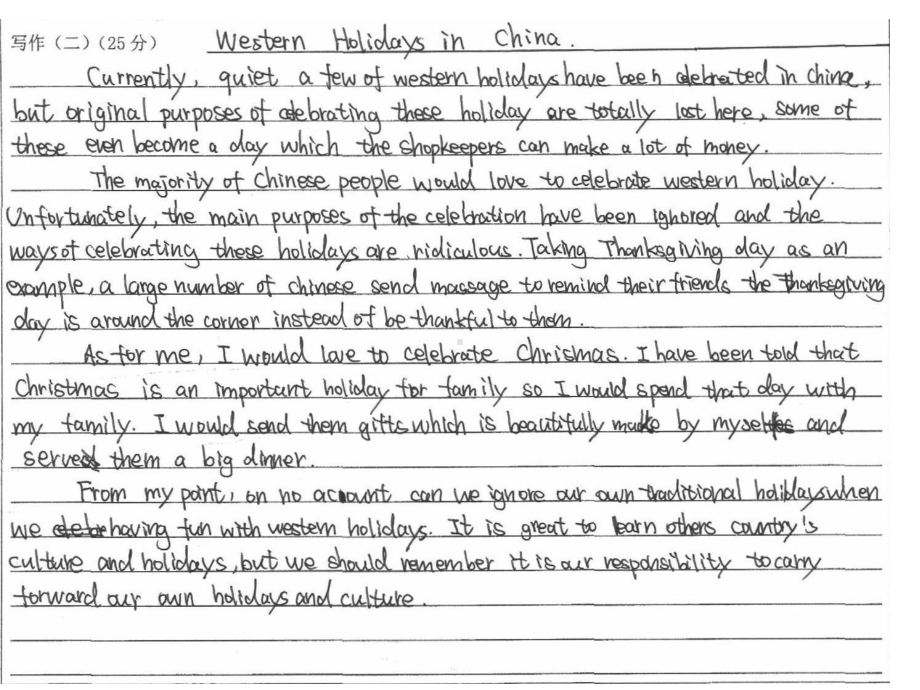 写作（二）（25 分） Western Holidays in China.
Currently, quiet a few of western holidays have been celebrated in China,
but original purposes of celebrating these holiday are totally lost here, some of
these even become a day which the shopkeepers can make a lot of money.
The majority of Chinese people would love to celebrate western holiday.
Unfortunately, the main purposes of the celebration have been ignored and the
ways of celebrating these holidays are ridiculous. Taking Thanksgiving day as an
example, a large number of chinese send massage to remind their friends the Thanksgiving
day is around the corner instead of be thankful to them.
As for me, I would love to celebrate Chrismas. I have been told that
Christmas is an important holiday for family so I would spend that day with
my family. I would send them gifts which is beautifully made by myself and
serve them a big dinner.
From my point, on no account can we ignore our own traditional holidays when
we having fun with western holidays. It is great to learn others country's
culture and holidays, but we should remember it is our responsibility to carry
forward our own holidays and culture.